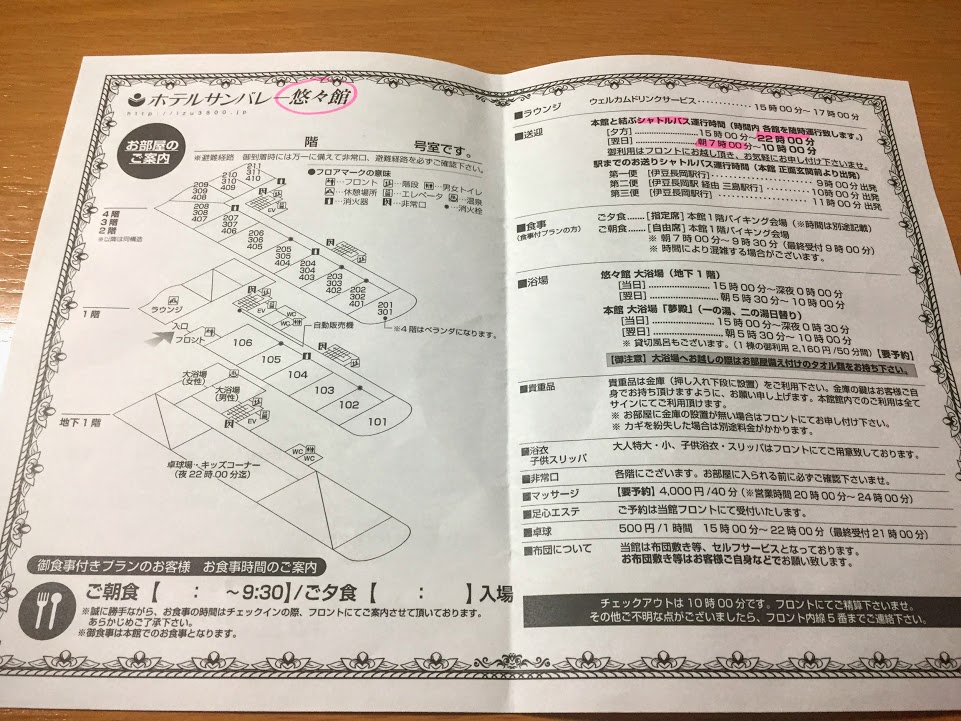 ホテルサンバレー悠々館
http://izu3800.jp
お部屋の
ご案内
階　　　号室です。
※避難経路　御到着時には万一に備えて非常口、避難経路を必ずご確認下さい。
●フロアマークの意味
…フロント …階段 …男女トイレ
…休憩場所 …エレベータ …温泉
…消火器 …非常口 ●…消火栓
4階
3階
2階
※公庫は同構造
211
311
411
210
310
410
209
309
409
208
308
408
207
307
407
206
306
406
205
305
405
204
304
404
203
303
403
202
302
402
201
301
401
EV
※4階はベランダになります。
1階
ラウンジ
入口
フロント
EV
WC
WC
自動販売機
106
105
104
103
102
101
地下1階
大浴場
(女性)
大浴場
(男性)
EV
WC
WC
卓球場・キッズコーナー
(夜22時00分迄)
御食事付きプランのお客様　お食事時間のご案内
ご朝食【　：　～9:30】/ご夕食【　：　】入場
※誠に勝手ながら、お食事の時間はチェックインの際、フロントにてご案内させて頂いております。
あらかじめご了承下さい。
※御食事は本館でのお食事となります。
■ラウンジ　ウェルカムドリンクサービス…………15時00分～17時00分
■送迎　本館と結ぶシャトルバス運行時間（時間内 各館を随時運行致します。）
[夕方]……………………15時00分～22時00分
[翌日]……………………朝7時00分～10時00分
御利用はフロントにお越し頂き、お気軽にお申し付け下さいませ。
駅までのお送りシャトルバス運行時間（本館 正面玄関前より出発）
第一便 [伊豆長岡駅行]……………………9時00分出発
第二便 [伊豆長岡駅 経由 三島駅行]…………10時00分出発
第三便 [伊豆長岡駅行]……………………11時00分出発
■食事　ご夕食……[指定席] 本館1階バイキング会場（※時間は別途記載）
(食事付プランの方)　ご朝食……[自由席] 本館1階バイキング会場
※ 朝7時00分～9時30分（最終受付9時00分）
※ 時間により混雑する場合がございます。
■浴場　悠々館 大浴場（地下1階）
[当日]……………………15時00分～深夜0時00分
[翌日]……………………朝5時30分～10時00分
本館 大浴場「夢殿」（一の湯、二の湯日替り）
[当日]……………………15時00分～深夜0時30分
[翌日]……………………朝5時30分～10時00分
※ 貸切風呂もございます。（1棟の御利用2,160円/50分間）【要予約】
【御注意】大浴場へお越しの際はお部屋備え付けのタオル類をお持ち下さい。
■貴重品　貴重品は金庫（押し入れ下段に設置）をご利用下さい。金庫の鍵はお客様ご自
身でお持ち頂けますように、お願い申し上げます。本館館内でのご利用は全て
サインにてご利用頂けます。
※ お部屋に金庫の設置が無い場合はフロントにてお申し付け下さい。
※ カギを紛失した場合は別途料金がかかります。
■浴衣　大人特大・小、子供浴衣・スリッパはフロントにてご用意致しております。
子供スリッパ
■非常口　各階にございます。お部屋に入られる前に必ずご確認下さいませ。
■マッサージ　【要予約】4,000円/40分（※営業時間20時00分～24時00分）
■足心エステ　ご予約は当館フロントにて受付いたします。
■卓球　500円/1時間　15時00分～22時00分（最終受付21時00分）
■布団について　当館は布団敷き等、セルフサービスとなっております。
お布団敷き等はお客様ご自身などでお願い致します。
チェックアウトは10時00分です。フロントにてご精算下さいませ。
その他ご不明な点がございましたら、フロント内線5番までご連絡下さい。